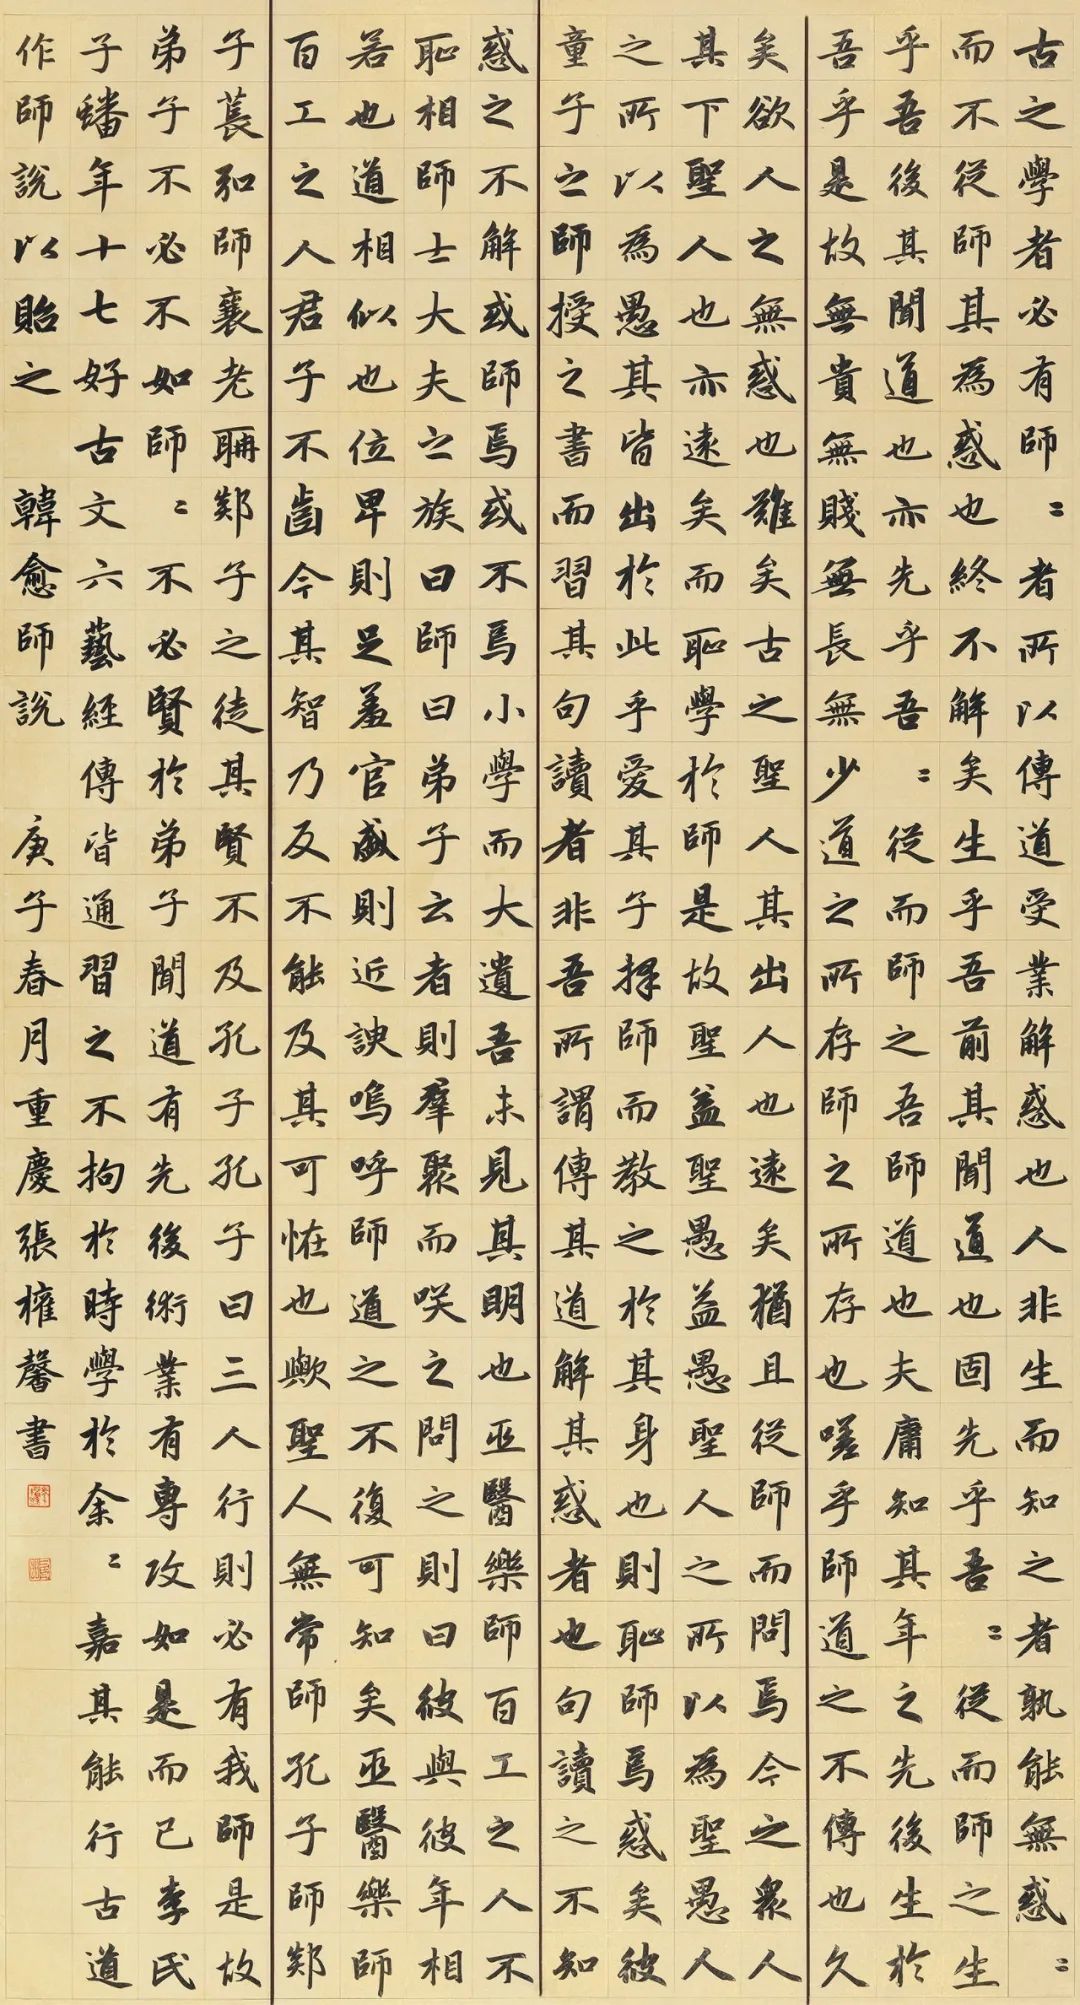 古之學者必有師〻者所以傳道受業解惑也人非生而知之者孰能無惑〻
而不從師其為惑也終不解矣生乎吾前其聞道也固先乎吾〻從而師之生
乎吾後其聞道也亦先乎吾〻從而師之吾師道也夫庸知其年之先後生於
吾乎是故無貴無賤無長無少道之所存師之所存也嗟乎師道之不傳也久
矣欲人之無惑也難矣古之聖人其出人也遠矣猶且從師而問焉今之眾人
其下聖人也亦遠矣而恥學於師是故聖益聖愚益愚聖人之所以為聖愚人
之所以為愚其皆出於此乎愛其子擇師而教之於其身也則恥師焉惑矣彼
童子之師授之書而習其句讀者非吾所謂傳其道解其惑者也句讀之不知
惑之不解或師焉或不焉小學而大遺吾未見其明也巫醫樂師百工之人不
恥相師士大夫之族曰師曰弟子云者則羣聚而咲之問之則曰彼與彼年相
若也道相似也位卑則足羞官盛則近諛嗚呼師道之不復可知矣巫醫樂師
百工之人君子不齒今其智乃反不能及其可恠也歟聖人無常師孔子師郯
子萇弘師襄老聃郯子之徒其賢不及孔子孔子曰三人行則必有我師是故
弟子不必不如師〻不必賢於弟子聞道有先後術業有專攻如是而已李氏
子蟠年十七好古文六藝經傳皆通習之不拘於時學於余〻嘉其能行古道
作師說以貽之 韓愈師說 庚子春月重慶張馨書